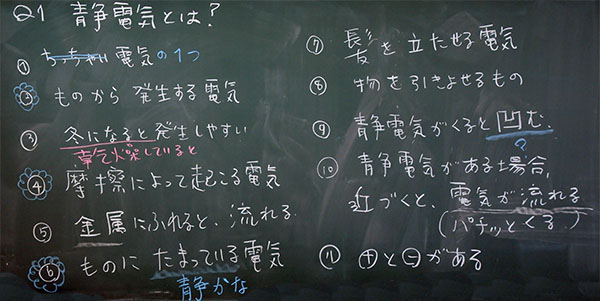 Q1 静電気とは?
① ちっちゃい電気の1つ
② ものから発生する電気
③ 冬になると発生しやすい
空気が乾燥していると
④ 摩擦によって起こる電気
⑤ 金属にふれると、流れる
⑥ ものにたまっている電気
静かな
⑦ 髪を立たせる電気
⑧ 物を引きよせるもの
⑨ 静電気がくると凹む。
?
⑩ 静電気がある場合、
近づくと、電気が流れる
(パチッとくる)
⑪ ⊕と⊖がある